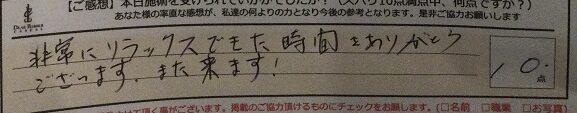 【ご感想】本日施術を受けられていかがでしたか？（ズバリ10点満点中、何点ですか？）
あなた様の率直な感想が、私達の何よりの力となり今後の参考となります。是非ご協力お願いします
非常にリラックスできた時間をありがとう
ございます。また来ます!
10点
頂く事がございます。掲載のご協力頂けるものにチェックをお願します。（□名前 □職業 □お写真）